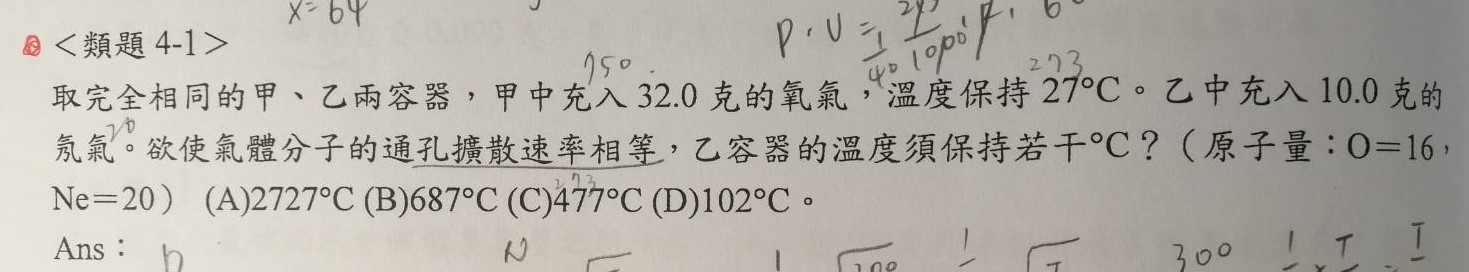 x=64
P.V=
＜類題 4-1＞
750
273
取完全相同的甲、乙兩容器，甲中充入 32.0 克的氧氣，溫度保持 27°C。乙中充入 10.0 克的
20
氖氣。欲使氣體分子的通孔擴散速率相等，乙容器的溫度須保持若干°C？（原子量：O＝16，
273
Ne＝20） (A)2727°C (B)687°C (C)477°C (D)102°C。
Ans：
300